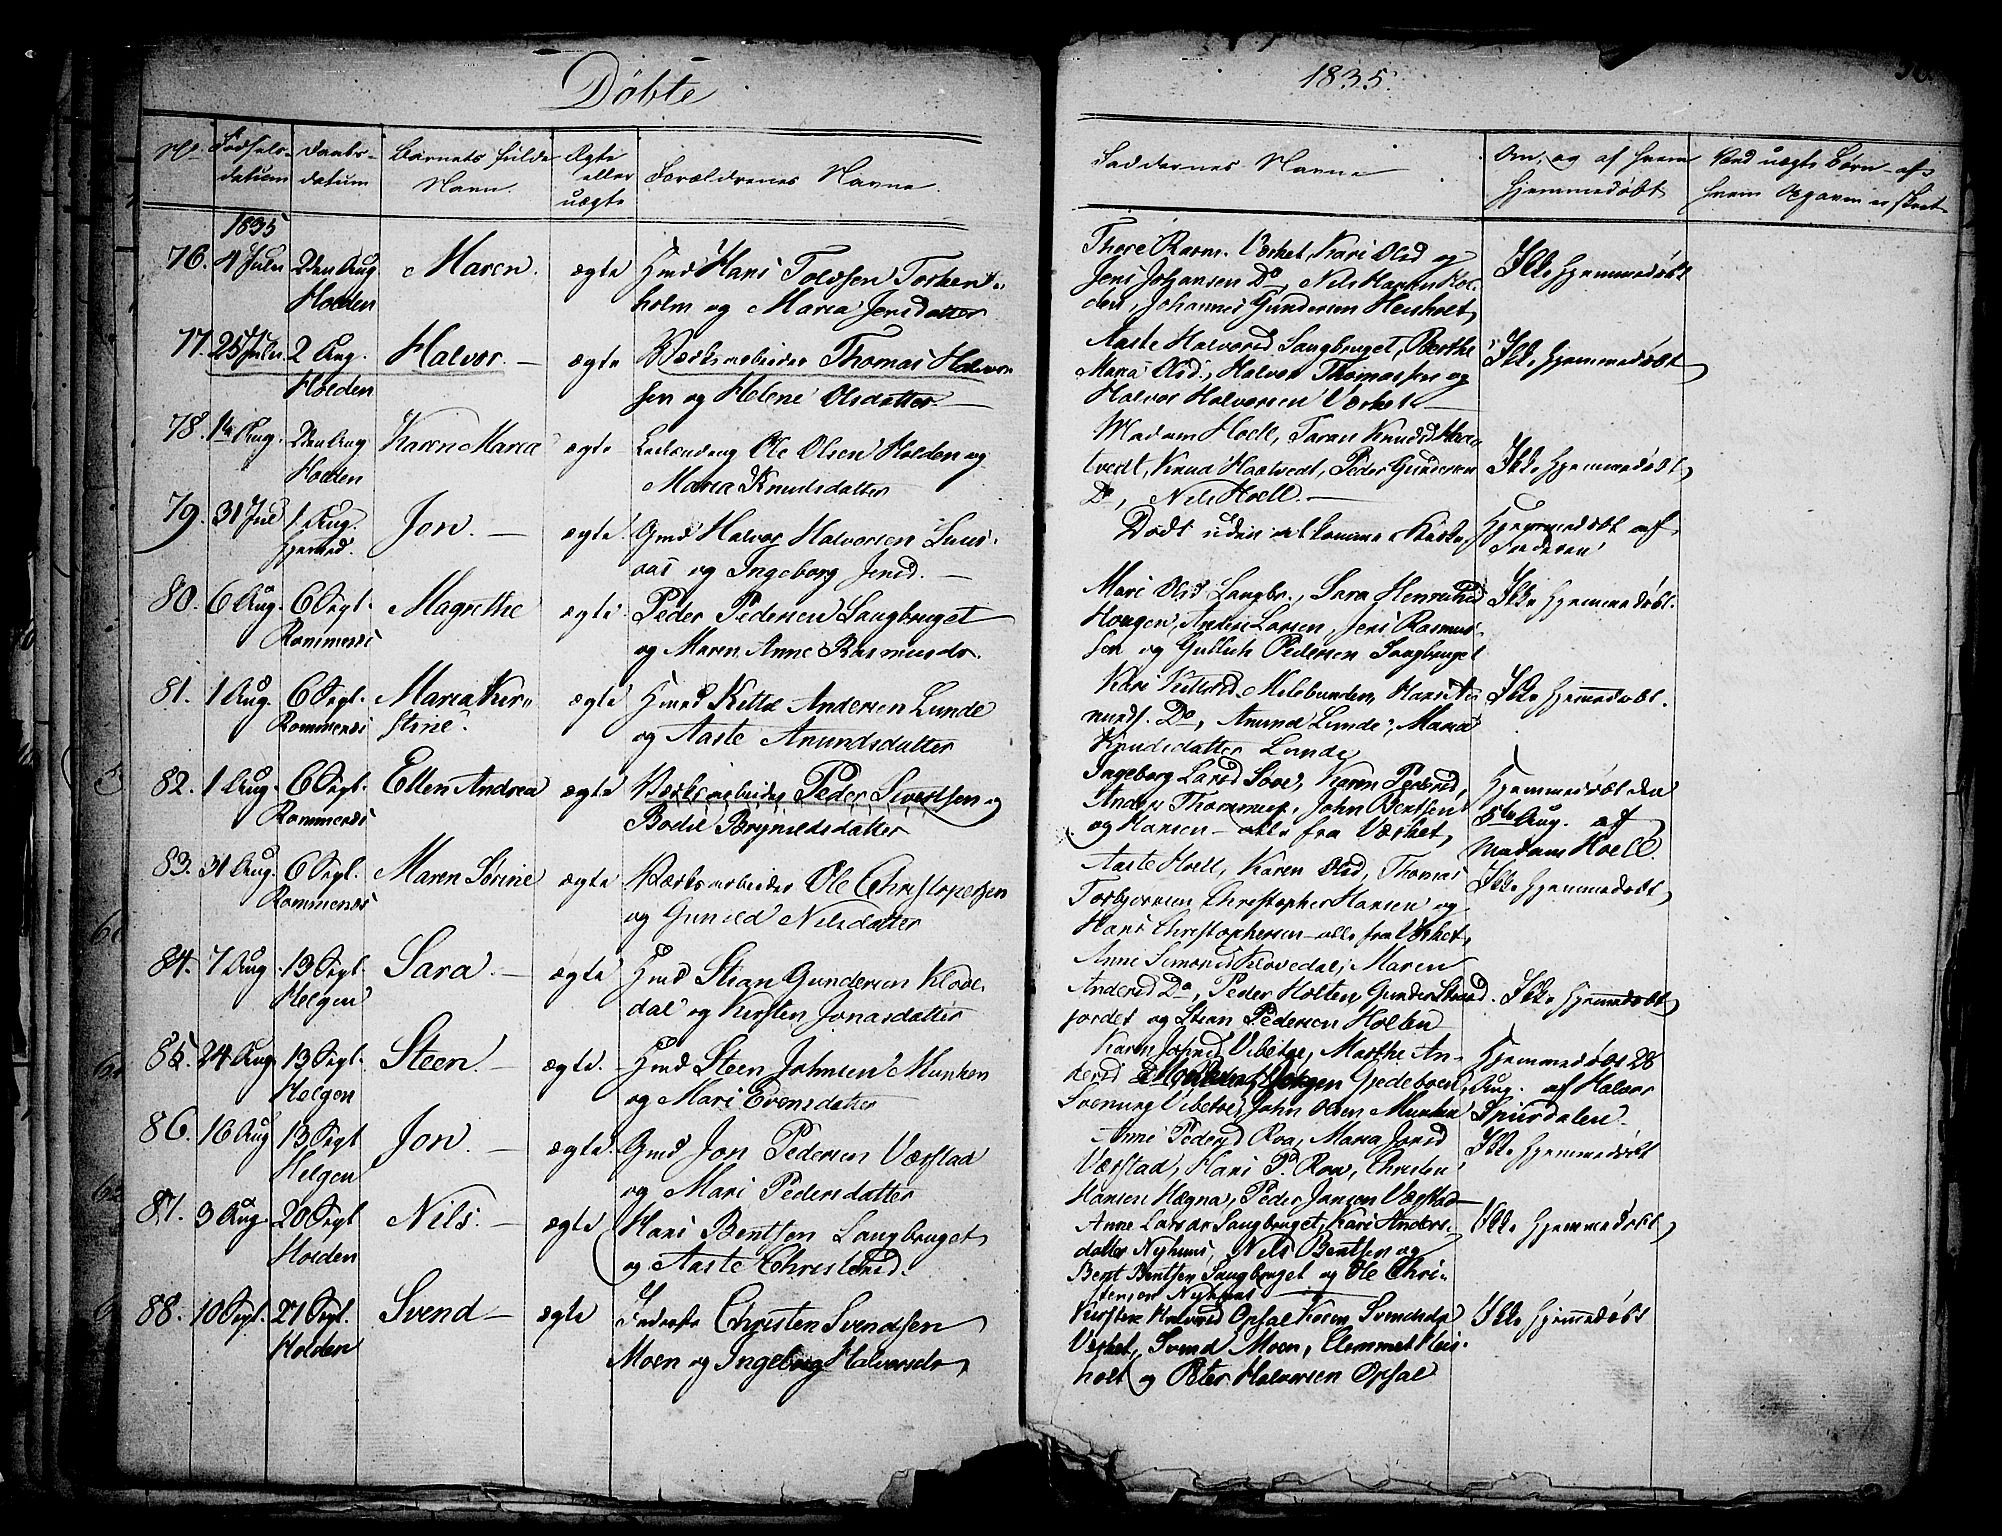 Döbte
1835.
No Födsels- datum
Daabs- datum
Barnets fulde Navn
Ægte eller uægte
Forældrenes Navne.
Faddernes Navne
Om, og af hvem hjemmedöbt
Ved uægte Börn - af hvem Opgaven er skeet
1835
76. 4 Juli 2den Aug. Holden Maren. ægte Hmd Hans Tolvsen Torken-
holm og Maria Jensdatter
Thore Ravn. Værket, Kari Olsd og
Jens Johansen Do, Nils Hansen Hol-
den, Johannes Gundersen Heisholt,
Ikke hjemmedöbt
77. 25 Juli 2 Aug. Holden Halvor. — ægte Værksarbeider Thomas Halvor-
sen og Helene Olsdatter —
Aaste Halvorsd Saugbruget, Berthe
Maria Olsd., Halvor Thomassen og
Halvor Halvorsen Værket —
Ikke hjemmedöbt
78. 1ste Aug. 2den Aug Holden Karen Maria ægte Ole Olsen Holden og
Maria Knudsdatter
Madam Hoell, Taran Knudsd
tvedt, Knud Haatvedt, Peder Gundersen
Do, Nils Hoell. —
Ikke hjemmedöbt
79. 31 Jul 1 Aug. hjemmd. Jon. — ægte Gmd Halvor Halvorsen Suus-
aas og Ingeborg Jensd. —
Dödt uden at komme i Kirke,
Hjemmedöbt af
Faderen
80. 6 Aug. 6 Sept. Rommenæs Magrethe ægte Peder Pedersen Saugbruget
og Maren Anne Rasmusdr.
Mari Olsd Saugbr., Sara Henriksd
Haugen, Anders Larsen, Jens Rasmus-
sen og Gullich Pedersen Saugbruget
Ikke hjemmedöbt.
81. 1 Aug. 6 Sept. Rommenæs Maria Kir-
stine. ægte Hmd Kittil Andersen Lunde
og Aaste Amundsdatter
Kari Kittilsd. Milebunden, Hans A-
munds. Do, Amund Lunde, Maria
Knudsdatter Lunde
Ikke hjemmedöbt.
82. 1 Aug. 6 Sept. Rommenæs Ellen Andrea ægte Værksarbeider Peder Sivertsen og
Bodil Brynildsdatter
Ingeborg Larsd Sove, Karen Pedersd,
Anders Thommes., John Bentsen
og Hansen - alle fra Værket,
Hjemmedöbt den
5te Aug. af
Madam Hoell.
83. 31 Aug. 6 Sept. Rommenæs Maren Sörine ægte Værksarbeider Ole Christophersen
og Gunild Nilsdatter
Aaste Hoell, Karen Olsd, Thomas
Torbjörnsen, Christopher Hansen og
Hans Christophersen - alle fra Værket,
Ikke hjemmedöbt
84. 7 Aug 13 Sept. Helgen Sara. — ægte Hmd Stian Gundersen Klove-
dal og Kirsten Jonasdatter
Anne Simonsd Klovedal, Maren
Andersd Do, Peder Holten, Gunder Strand-
jordet og Stian Pedersen Holten
Ikke hjemmedöbt
85. 24 Aug 13 Sept. Helgen Steen. — ægte. Hmd Steen Johnsen Munken
og Mari Evensdatter
Karen Johnsd Vibetoe, Marthe An-
dersd Jörgen Gjedeboen,
Svenung Vibetoe, John Olsen Munken
Hjemmedöbt 28
Aug. af Halvor
Spiurdalen.
86. 16 Aug 13 Sept Helgen Jon. — ægte. Gmd Jon Pedersen Værstad
og Mari Pedersdatter
Anne Pedersd Roa, Maria Jonsd
Værstad, Hans P. Roa, Christen
Hansen Hægna, Peder Jansen Værstad
Ikke hjemmedöbt
87. 3 Aug. 20 Sept Holden Nils. — ægte Hans Bentsen Saugbruget
og Aaste Christensd.
Anne Larsdr Saugbruget, Kari Anders-
datter Nyhuus, Nils Bentsen og
Bent Bentsen Saugbruget og Ole Chri-
stensen Nyhuus
Ikke hjemmedöbt
88. 10 Sept. 27 Sept. Holden Svend — ægte Inderste Christen Svendsen
Moen og Ingeborg Halvorsdr
Kirstine Halvorsd Opsal, Karen Svendsdr
Værket, Svend Moen, Clemmet Heis-
holt og Peter Halvorsen Opsal
Ikke hjemmedöbt